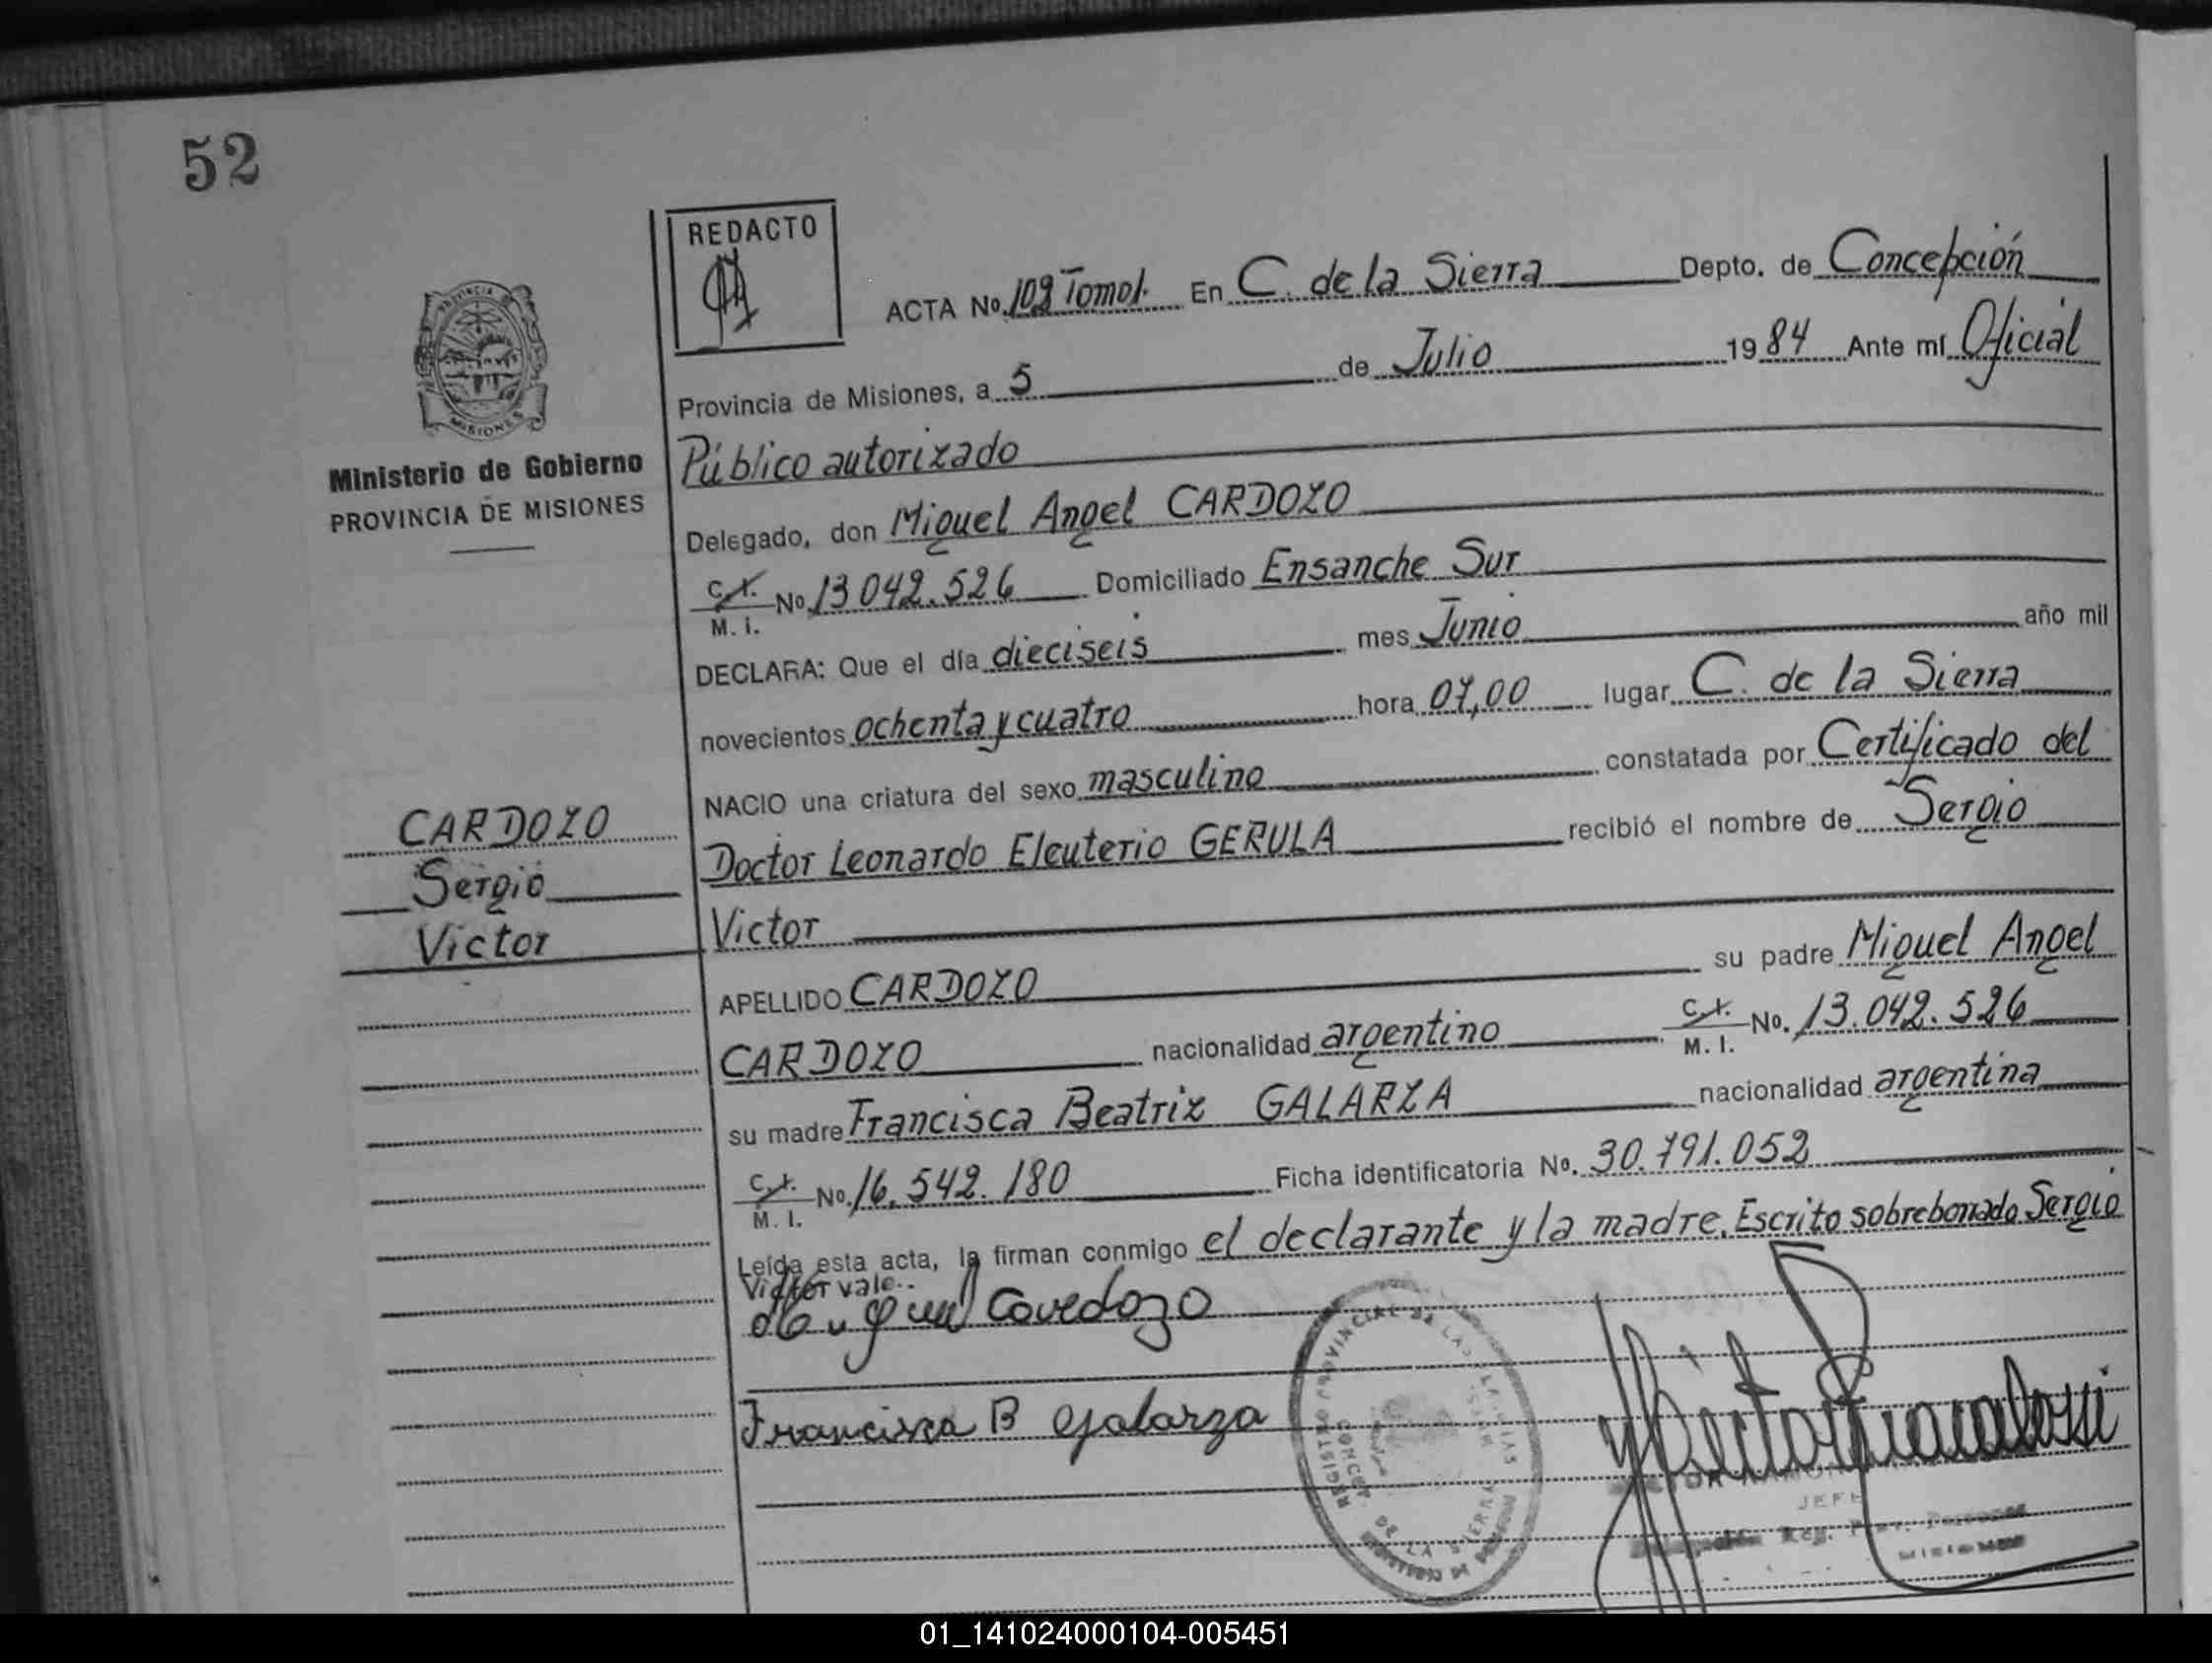 52
REDACTO
ACTA No. 109 Tomo I. En C. de la Sierra Depto. de Concepción
Provincia de Misiones, a 5 de Julio 1984 Ante mí Oficial
PROVINCIA
MISIONES
Ministerio de Gobierno
PROVINCIA DE MISIONES
Público autorizado
Delegado, don Miguel Angel CARDOZO
C.I. M.I. No. 13042.526 Domiciliado Ensanche Sur
DECLARA: Que el día dieciseis mes Junio año mil
novecientos ochenta y cuatro hora 07,00 lugar C. de la Sierra
NACIO una criatura del sexo masculino constatada por Certificado del
CARDOZO
Sergio
Victor
Doctor Leonardo Eleuterio GERULA recibió el nombre de Sergio
Victor
APELLIDO CARDOZO su padre Miguel Angel
CARDOZO nacionalidad argentino C.I. M.I. No. 13.042.526
su madre Francisca Beatriz GALARZA nacionalidad argentina
C.I. M.I. No. 16.542.180 Ficha identificatoria No. 30.791.052
Leída esta acta, la firman conmigo el declarante y la madre. Escrito sobreborrado Sergio
Victor vale.
Cardozo
Francisca B Galarza
REGISTRO PROVINCIAL DE LAS
DE LA SIERRA
JEFE
01_141024000104-005451